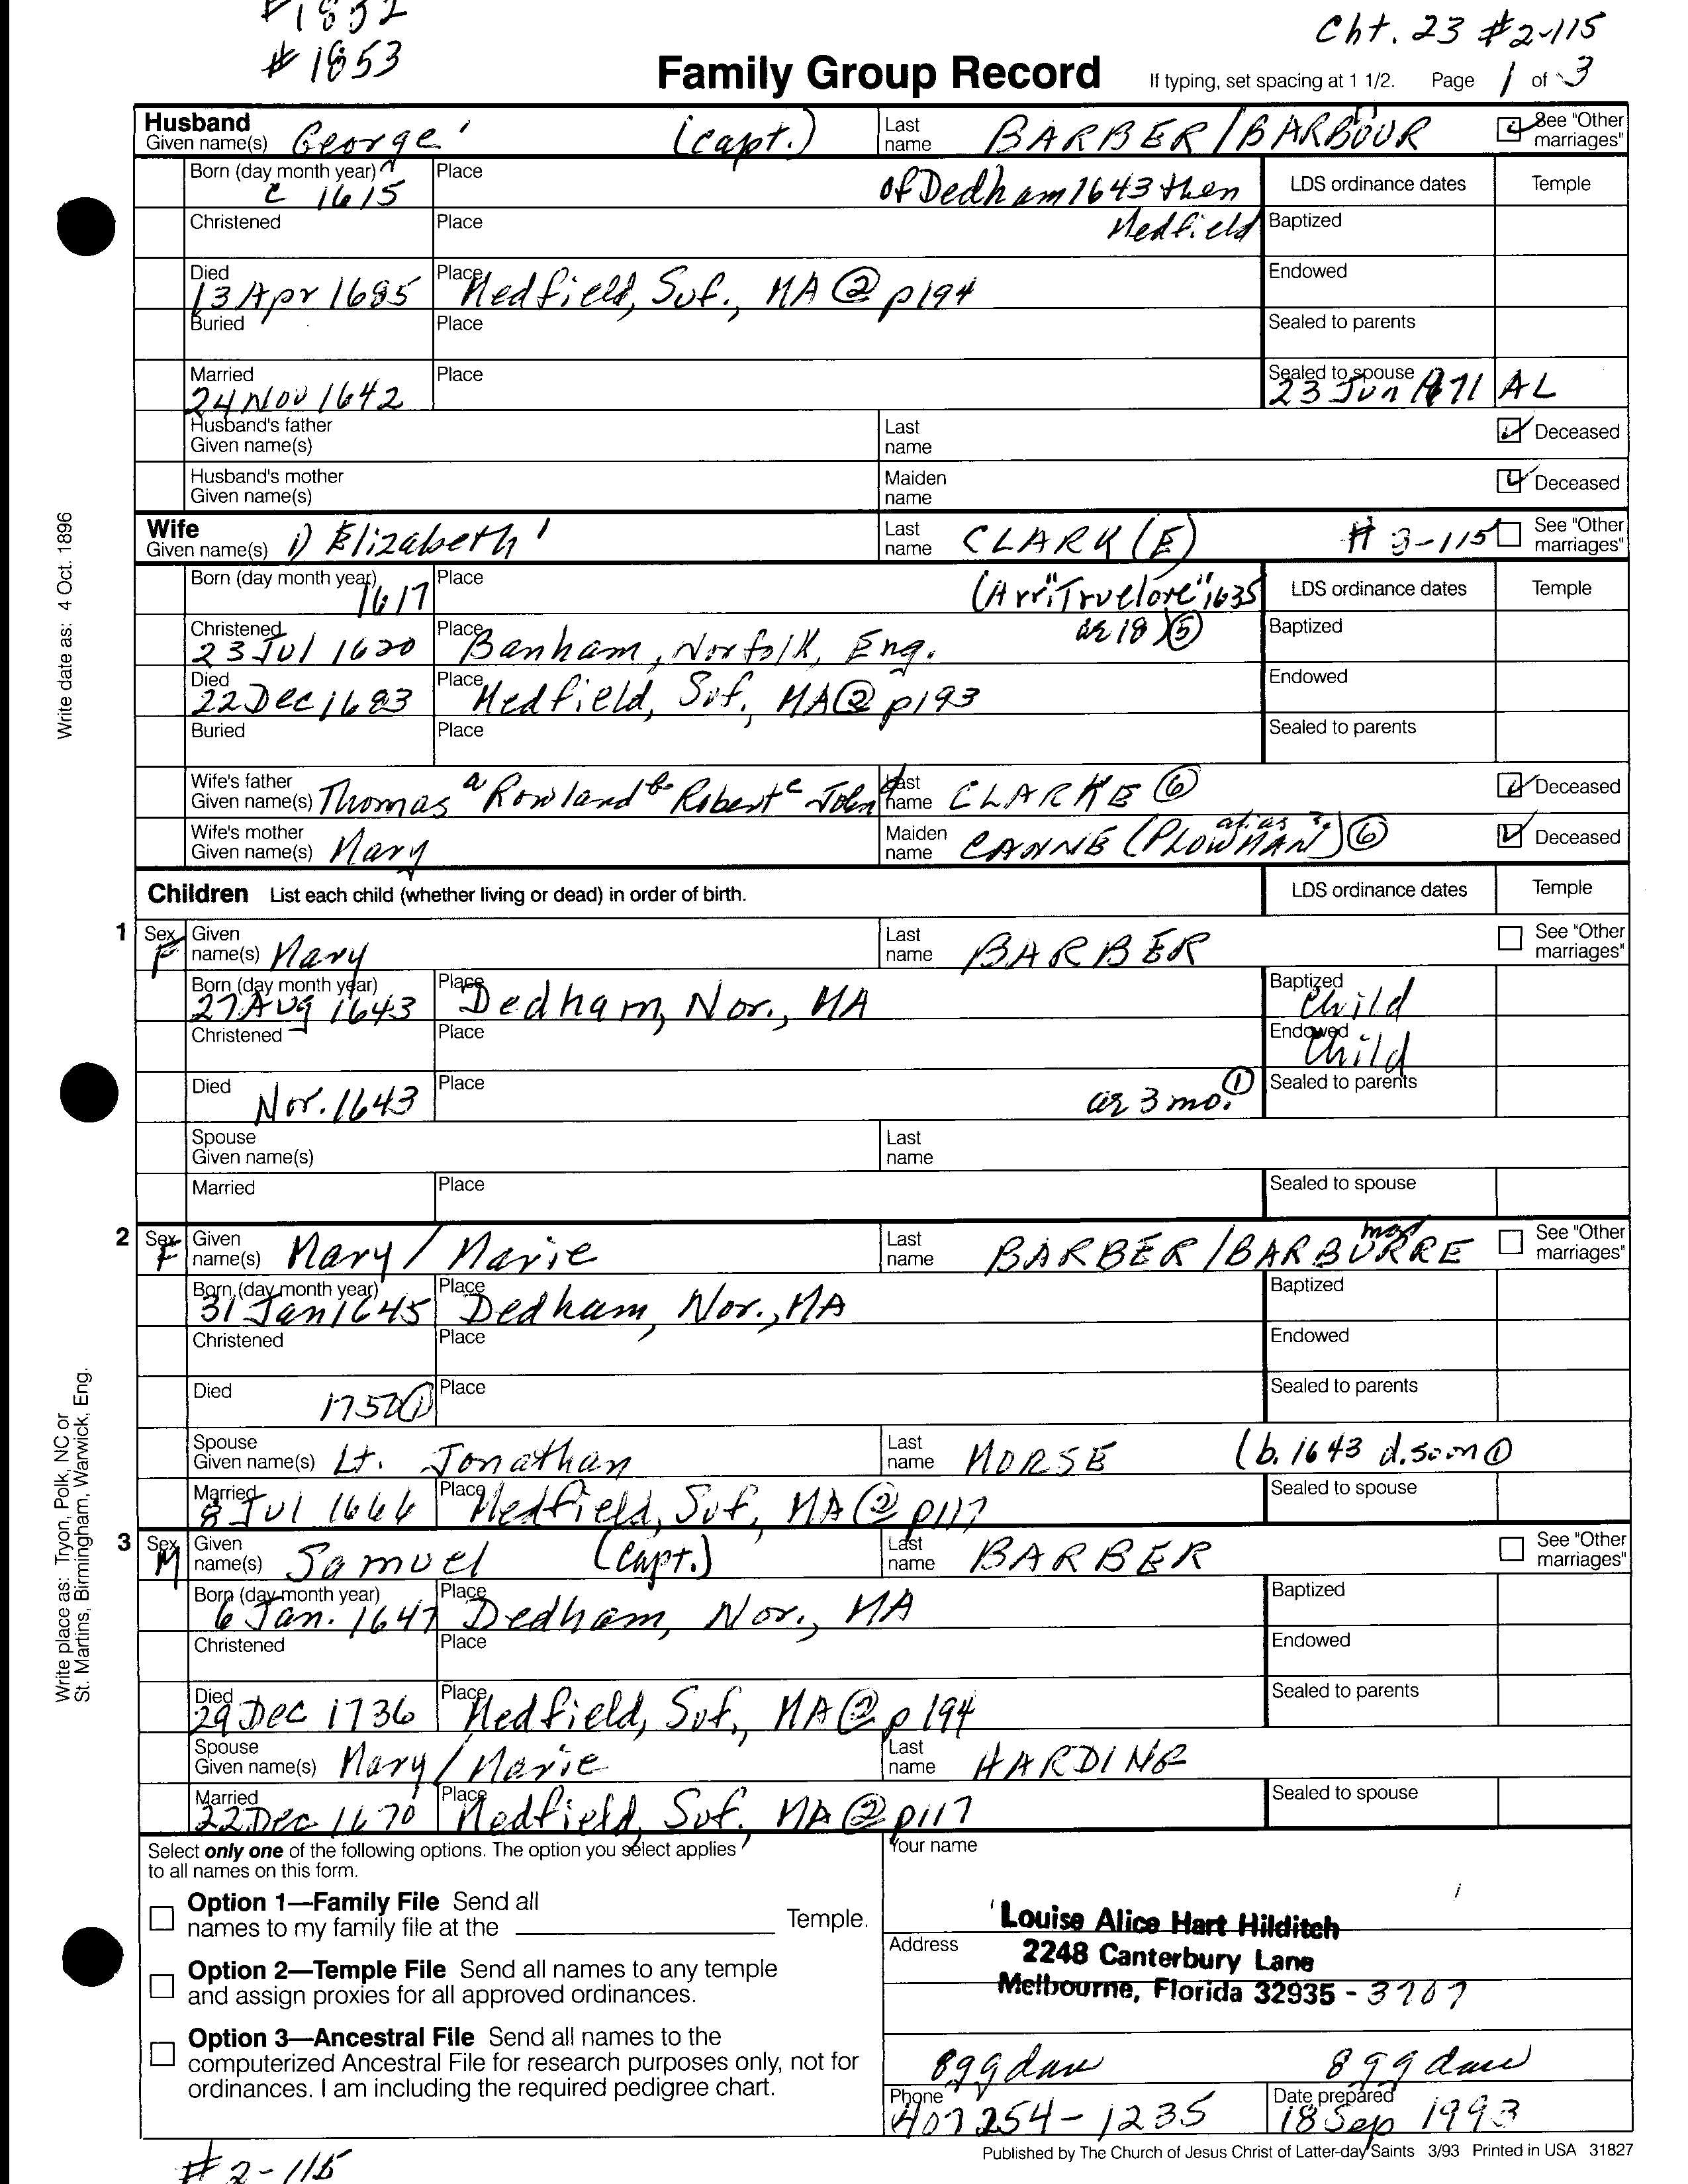 # 1852
# 1853
Cht. 23 #2-115
Family Group Record
If typing, set spacing at 1 1/2. Page 1 of 3
Husband
Given name(s) George ' (Capt.) Last name BARBER / BARBOUR See "Other marriages"
Born (day month year) c 1615 Place of Dedham 1643 then LDS ordinance dates Temple
Christened Place Medfield Baptized
Died 13 Apr 1685 Place Medfield, Suf., MA @ p194 Endowed
Buried Place Sealed to parents
Married 24 Nov 1642 Place Sealed to spouse 23 Jun 1971 AL
Husband's father Given name(s) Last name Deceased
Husband's mother Given name(s) Maiden name Deceased
Write date as: 4 Oct. 1896
Wife
Given name(s) 1) Elizabeth ' Last name CLARK (E) # 3-115 See "Other marriages"
Born (day month year) 1617 Place (Arr. "Truelove" 1635 LDS ordinance dates Temple
Christened 23 Jul 1620 Place Banham, Norfolk, Eng. ae 18) 5 Baptized
Died 22 Dec 1683 Place Medfield, Suf., MA @ p193 Endowed
Buried Place Sealed to parents
Wife's father Given name(s) Thomas a Rowland b Robert c John d Last name CLARKE 6 Deceased
Wife's mother Given name(s) Mary Maiden name CANNE (alias PLOWMAN ?) 6 Deceased
Children List each child (whether living or dead) in order of birth. LDS ordinance dates Temple
1 Sex F Given name(s) Mary Last name BARBER See "Other marriages"
Born (day month year) 27 Aug 1643 Place Dedham, Nor., MA Baptized Child
Christened Place Endowed Child
Died Nov. 1643 Place ae 3 mo. 1 Sealed to parents
Spouse Given name(s) Last name
Married Place Sealed to spouse
2 Sex F Given name(s) Mary / Marie Last name BARBER / BARBURRE See "Other marriages"
Born (day month year) 31 Jan 1645 Place Dedham, Nor., MA Baptized
Christened Place Endowed
Died 1750 1 Place Sealed to parents
Spouse Given name(s) Lt. Jonathan Last name MORSE (b. 1643 d. soon 1
Married 8 Jul 1666 Place Medfield, Suf., MA 2 p117 Sealed to spouse
Write place as: Tryon, Polk, NC or
St. Martins, Birmingham, Warwick, Eng.
3 Sex M Given name(s) Samuel (Capt.) Last name BARBER See "Other marriages"
Born (day month year) 6 Jan. 1647 Place Dedham, Nor., MA Baptized
Christened Place Endowed
Died 29 Dec 1736 Place Medfield, Suf., MA 2 p 194 Sealed to parents
Spouse Given name(s) Mary / Marie Last name HARDING
Married 22 Dec 1670 Place Medfield, Suf. MA 2 p117 Sealed to spouse
Select only one of the following options. The option you select applies
to all names on this form.
Option 1—Family File Send all
names to my family file at the Temple.
Option 2—Temple File Send all names to any temple
and assign proxies for all approved ordinances.
Option 3—Ancestral File Send all names to the
computerized Ancestral File for research purposes only, not for
ordinances. I am including the required pedigree chart.
Your name
Louise Alice Hart Hilditch
Address
2248 Canterbury Lane
Melbourne, Florida 32935 - 3707
Phone 407 254-1235
Date prepared 18 Sep 1993
Published by The Church of Jesus Christ of Latter-day Saints 3/93 Printed in USA 31827
#2-115